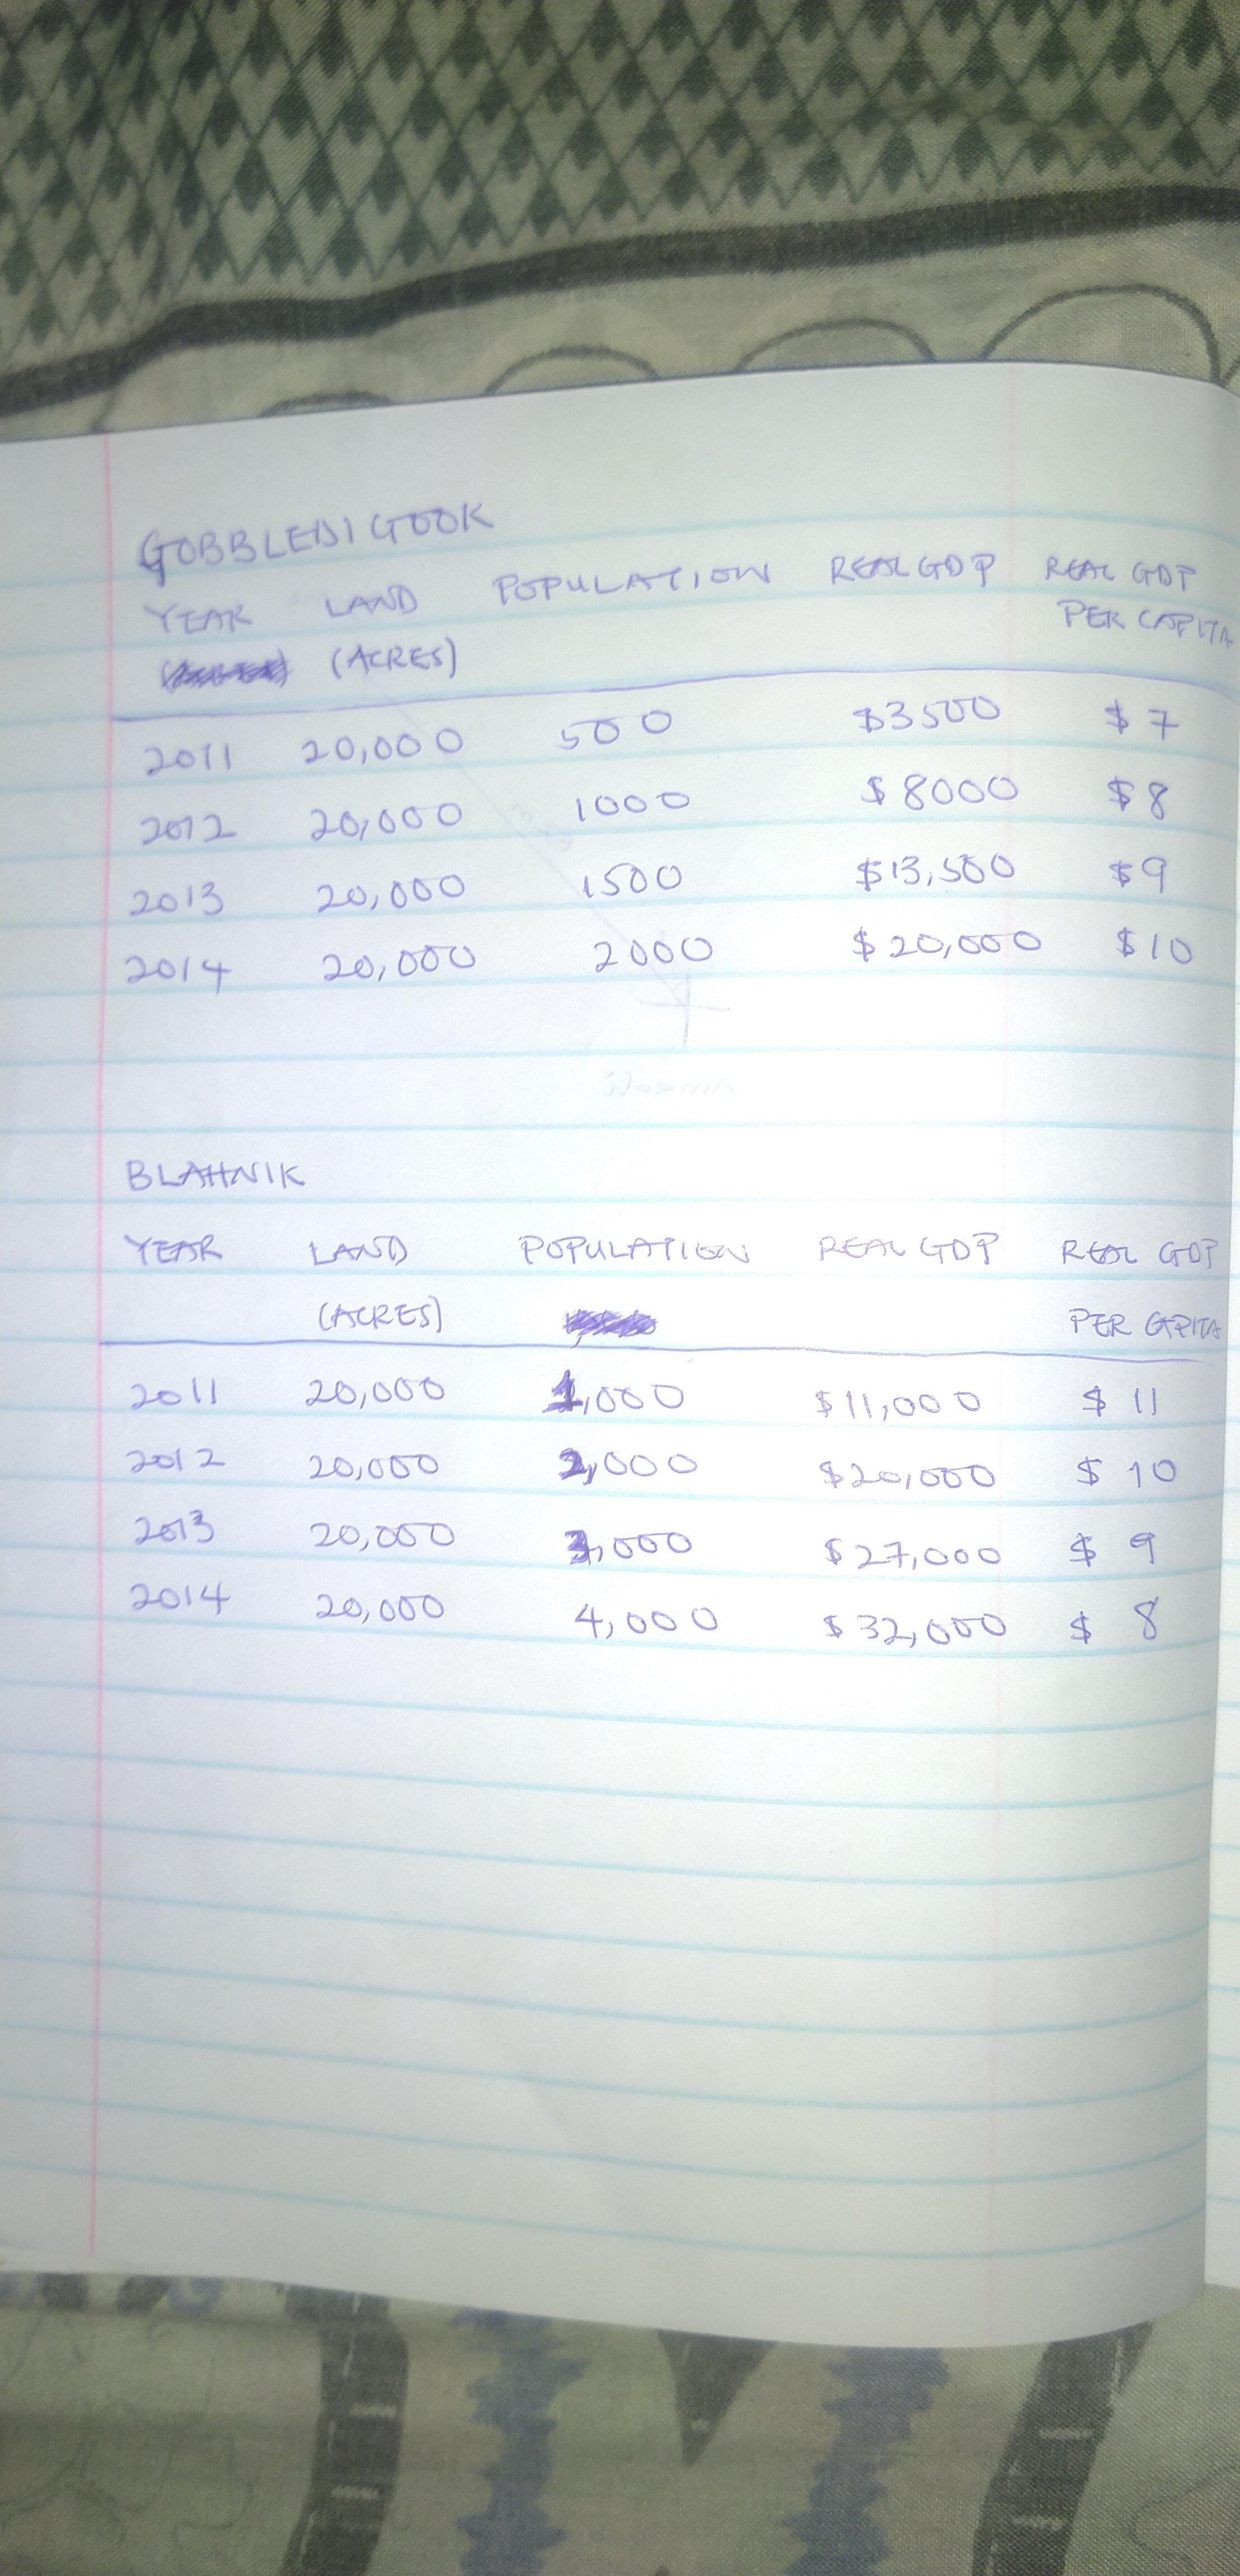 GOBBLEDIGOOK
YEAR LAND POPULATION REAL GDP REAL GDP
(ACRES) PER CAPITA
2011 20,000 500 $3500 $7
2012 20,000 1000 $8000 $8
2013 20,000 1500 $13,500 $9
2014 20,000 2000 $20,000 $10
BLAHNIK
YEAR LAND POPULATION REAL GDP REAL GDP
(ACRES) PER CAPITA
2011 20,000 1,000 $11,000 $11
2012 20,000 2,000 $20,000 $10
2013 20,000 3,000 $27,000 $9
2014 20,000 4,000 $32,000 $8